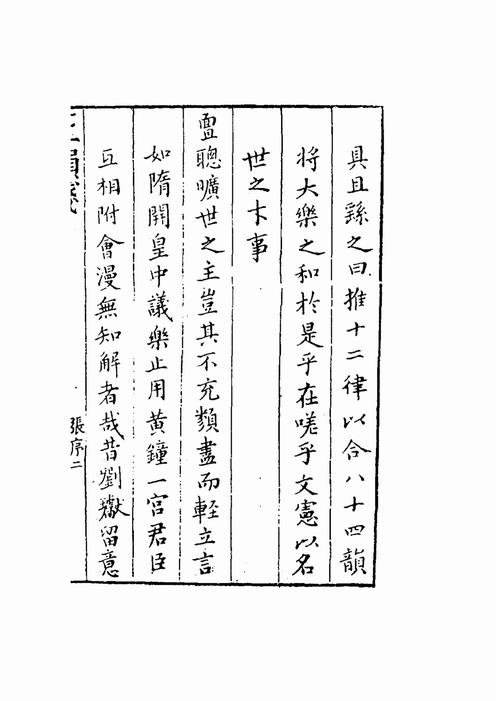 具且繇之曰推十二律以合八十四韻
将大樂之和於是乎在嗟乎文憲以名
世之才事
靈聰曠世之主豈其不充類盡而輕立言
如隋開皇中議樂止用黄鐘一宮君臣
互相附會漫無知解者哉昔劉獻留意
正韻箋
張序二